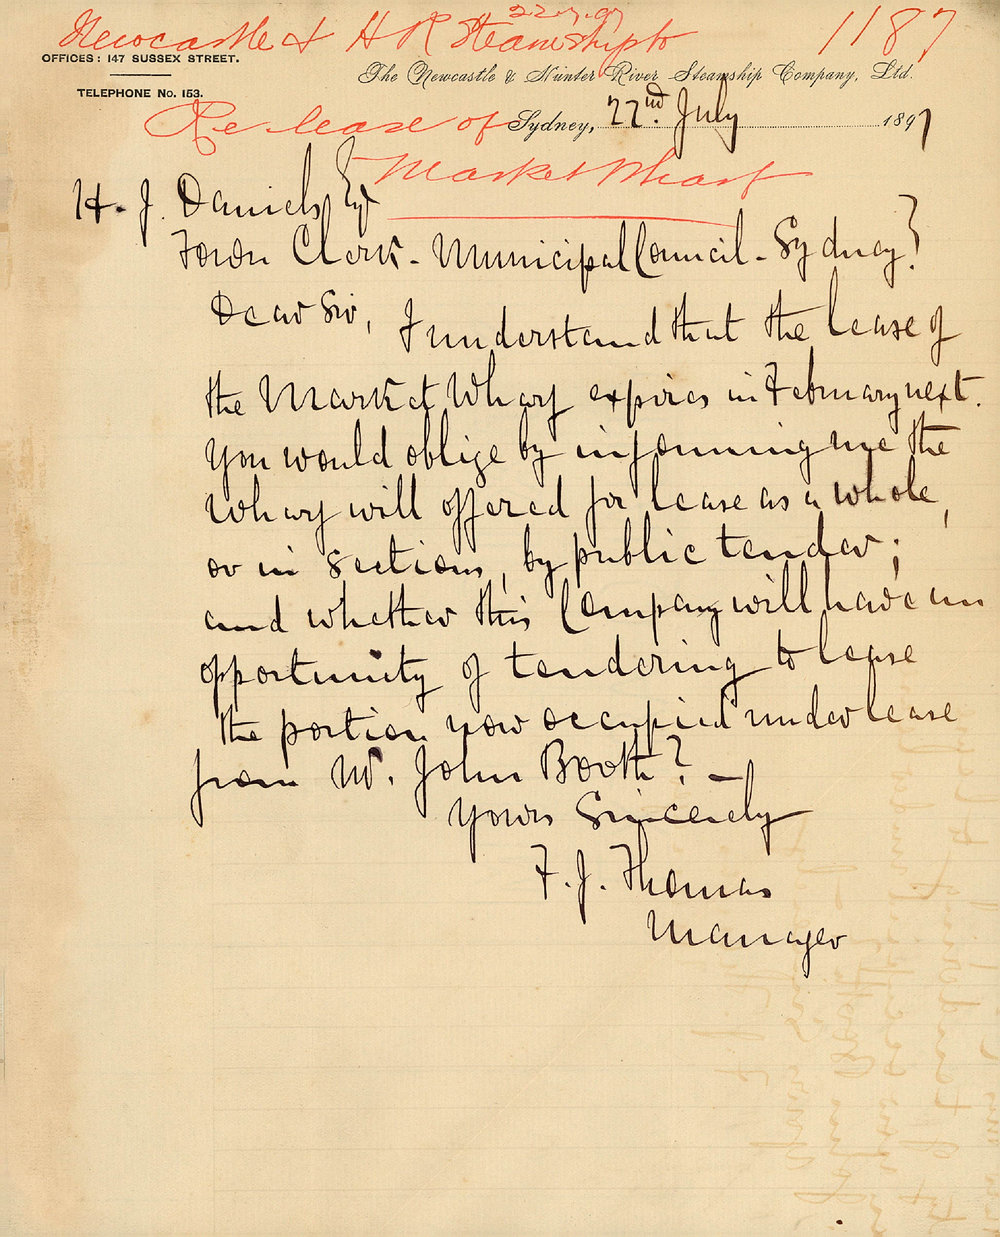 22.7.97
Newcastle & H R Steamship Co 1187
OFFICES: 147 SUSSEX STREET.
The Newcastle & Hunter River Steamship Company, Ltd.
TELEPHONE No. 153.
Re lease of Sydney, 22nd. July 1897
Market Wharf
H. J. Daniels Esq
Town Clerk - Municipal Council - Sydney.
Dear Sir, I understand that the lease of
the Market Wharf expires in February next.
You would oblige by informing me the
Wharf will offered for lease as a whole,
or in sections, by public tender;
and whether this Company will have an
opportunity of tendering to lease
the portion now occupied under lease
from Mr. John Booth? —
Yours Sincerely
F. J. Thomas
Manager